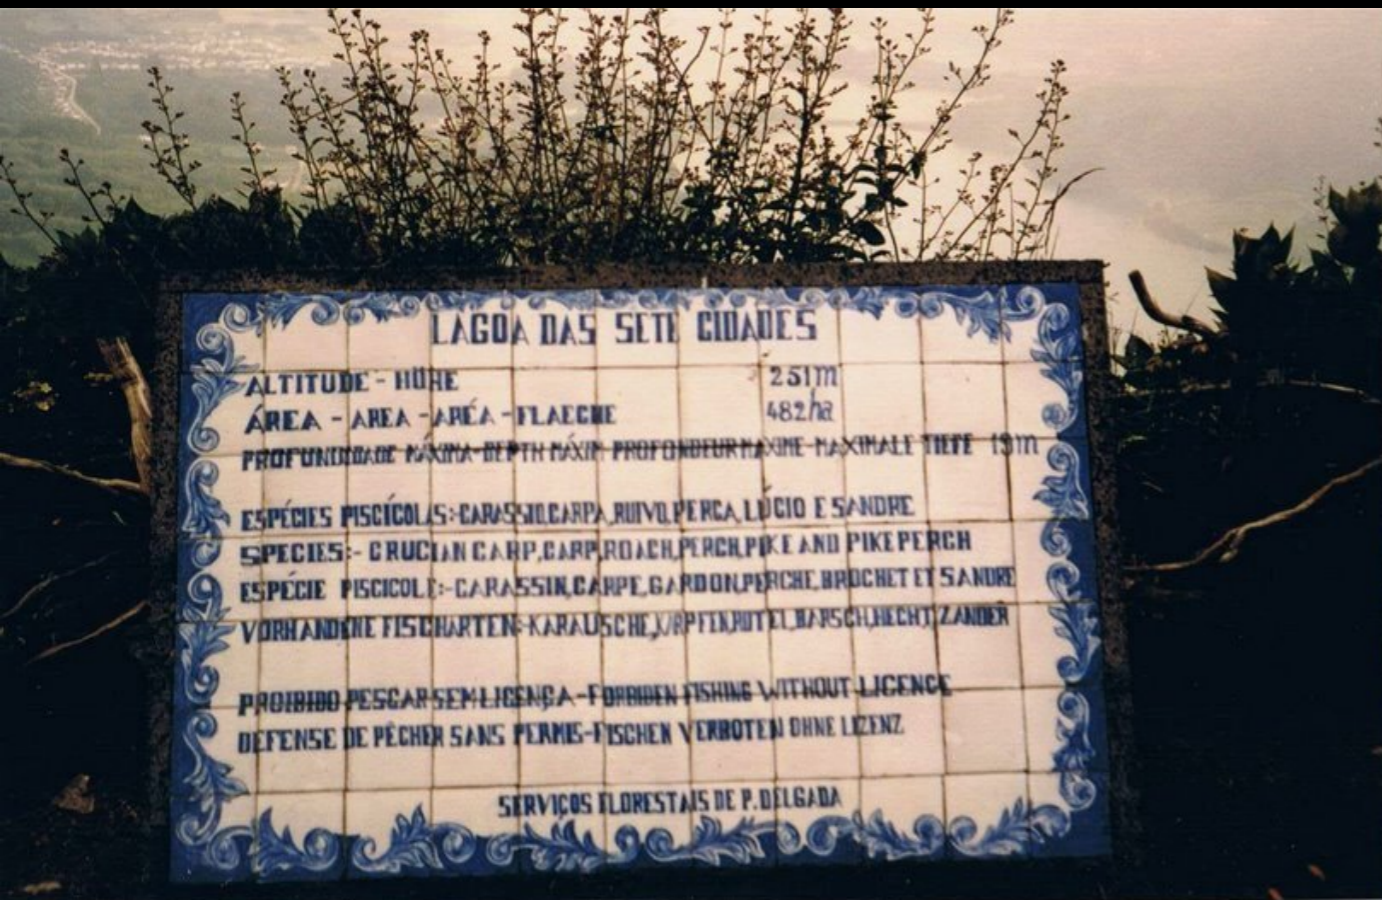 LAGOA DAS SETE CIDADES
ALTITUDE - HÖHE 251m
ÁREA - AREA - ARÉA - FLAECHE 482ha
PROFUNDIDADE MÁXIMA-DEPTH MÁXIM PROFONDEUR MAXIME-MAXIMALE TIEFE 19m
ESPÉCIES PISCÍCOLAS:-CARASSIO,CARPA,RUIVO,PERCA,LÚCIO E SANDRE
SPECIES:- CRUCIAN CARP,CARP,ROACH,PERCH,PIKE AND PIKEPERCH
ESPÉCIE PISCICOLE:-CARASSIN,CARPE,GARDON,PERCHE,BROCHET ET SANDRE
VORHANDENE FISCHARTEN:-KARAUSCHE,KARPFEN,ROTEL,BARSCH,HECHT,ZANDER
PROIBIDO PESCAR SEM LICENÇA-FORBIDEN FISHING WITHOUT LICENCE
DEFENSE DE PÊCHER SANS PERMIS-FISCHEN VERBOTEN OHNE LIZENZ
SERVIÇOS FLORESTAIS DE P. DELGADA